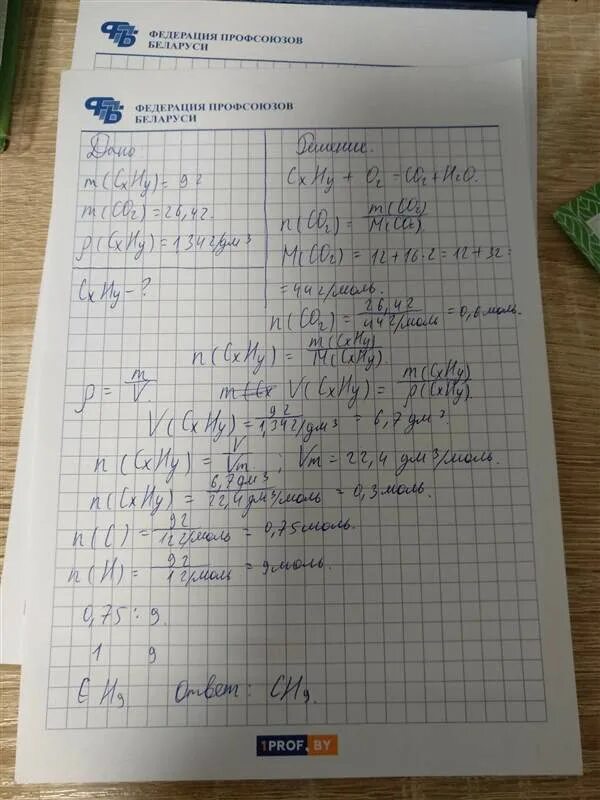 ФЕДЕРАЦИЯ ПРОФСОЮЗОВ
БЕЛАРУСИ
ФЕДЕРАЦИЯ ПРОФСОЮЗОВ
БЕЛАРУСИ
Дано:
m(CxHy) = 9 г
m(CO2) = 26,4 г.
ρ(CxHy) = 1,34 г/дм3
CxHy - ?
Решение.
CxHy + O2 = CO2 + H2O.
n(CO2) = m(CO2) / M(CO2).
M(CO2) = 12 + 16·2 = 12 + 32 =
= 44 г/моль.
n(CO2) = 26,4 г / 44 г/моль = 0,6 моль.
n(CxHy) = m(CxHy) / M(CxHy)
ρ = m / V. V(CxHy) = m(CxHy) / ρ(CxHy).
V(CxHy) = 9 г / 1,34 г/дм3 = 6,7 дм3.
n(CxHy) = V / Vm ; Vm = 22,4 дм3/моль.
n(CxHy) = 6,7 дм3 / 22,4 дм3/моль = 0,3 моль.
n(C) = 9 г / 12 г/моль = 0,75 моль.
n(H) = 9 г / 1 г/моль = 9 моль.
0,75 : 9.
1 9
CH9 Ответ: CH9.
1PROF.BY